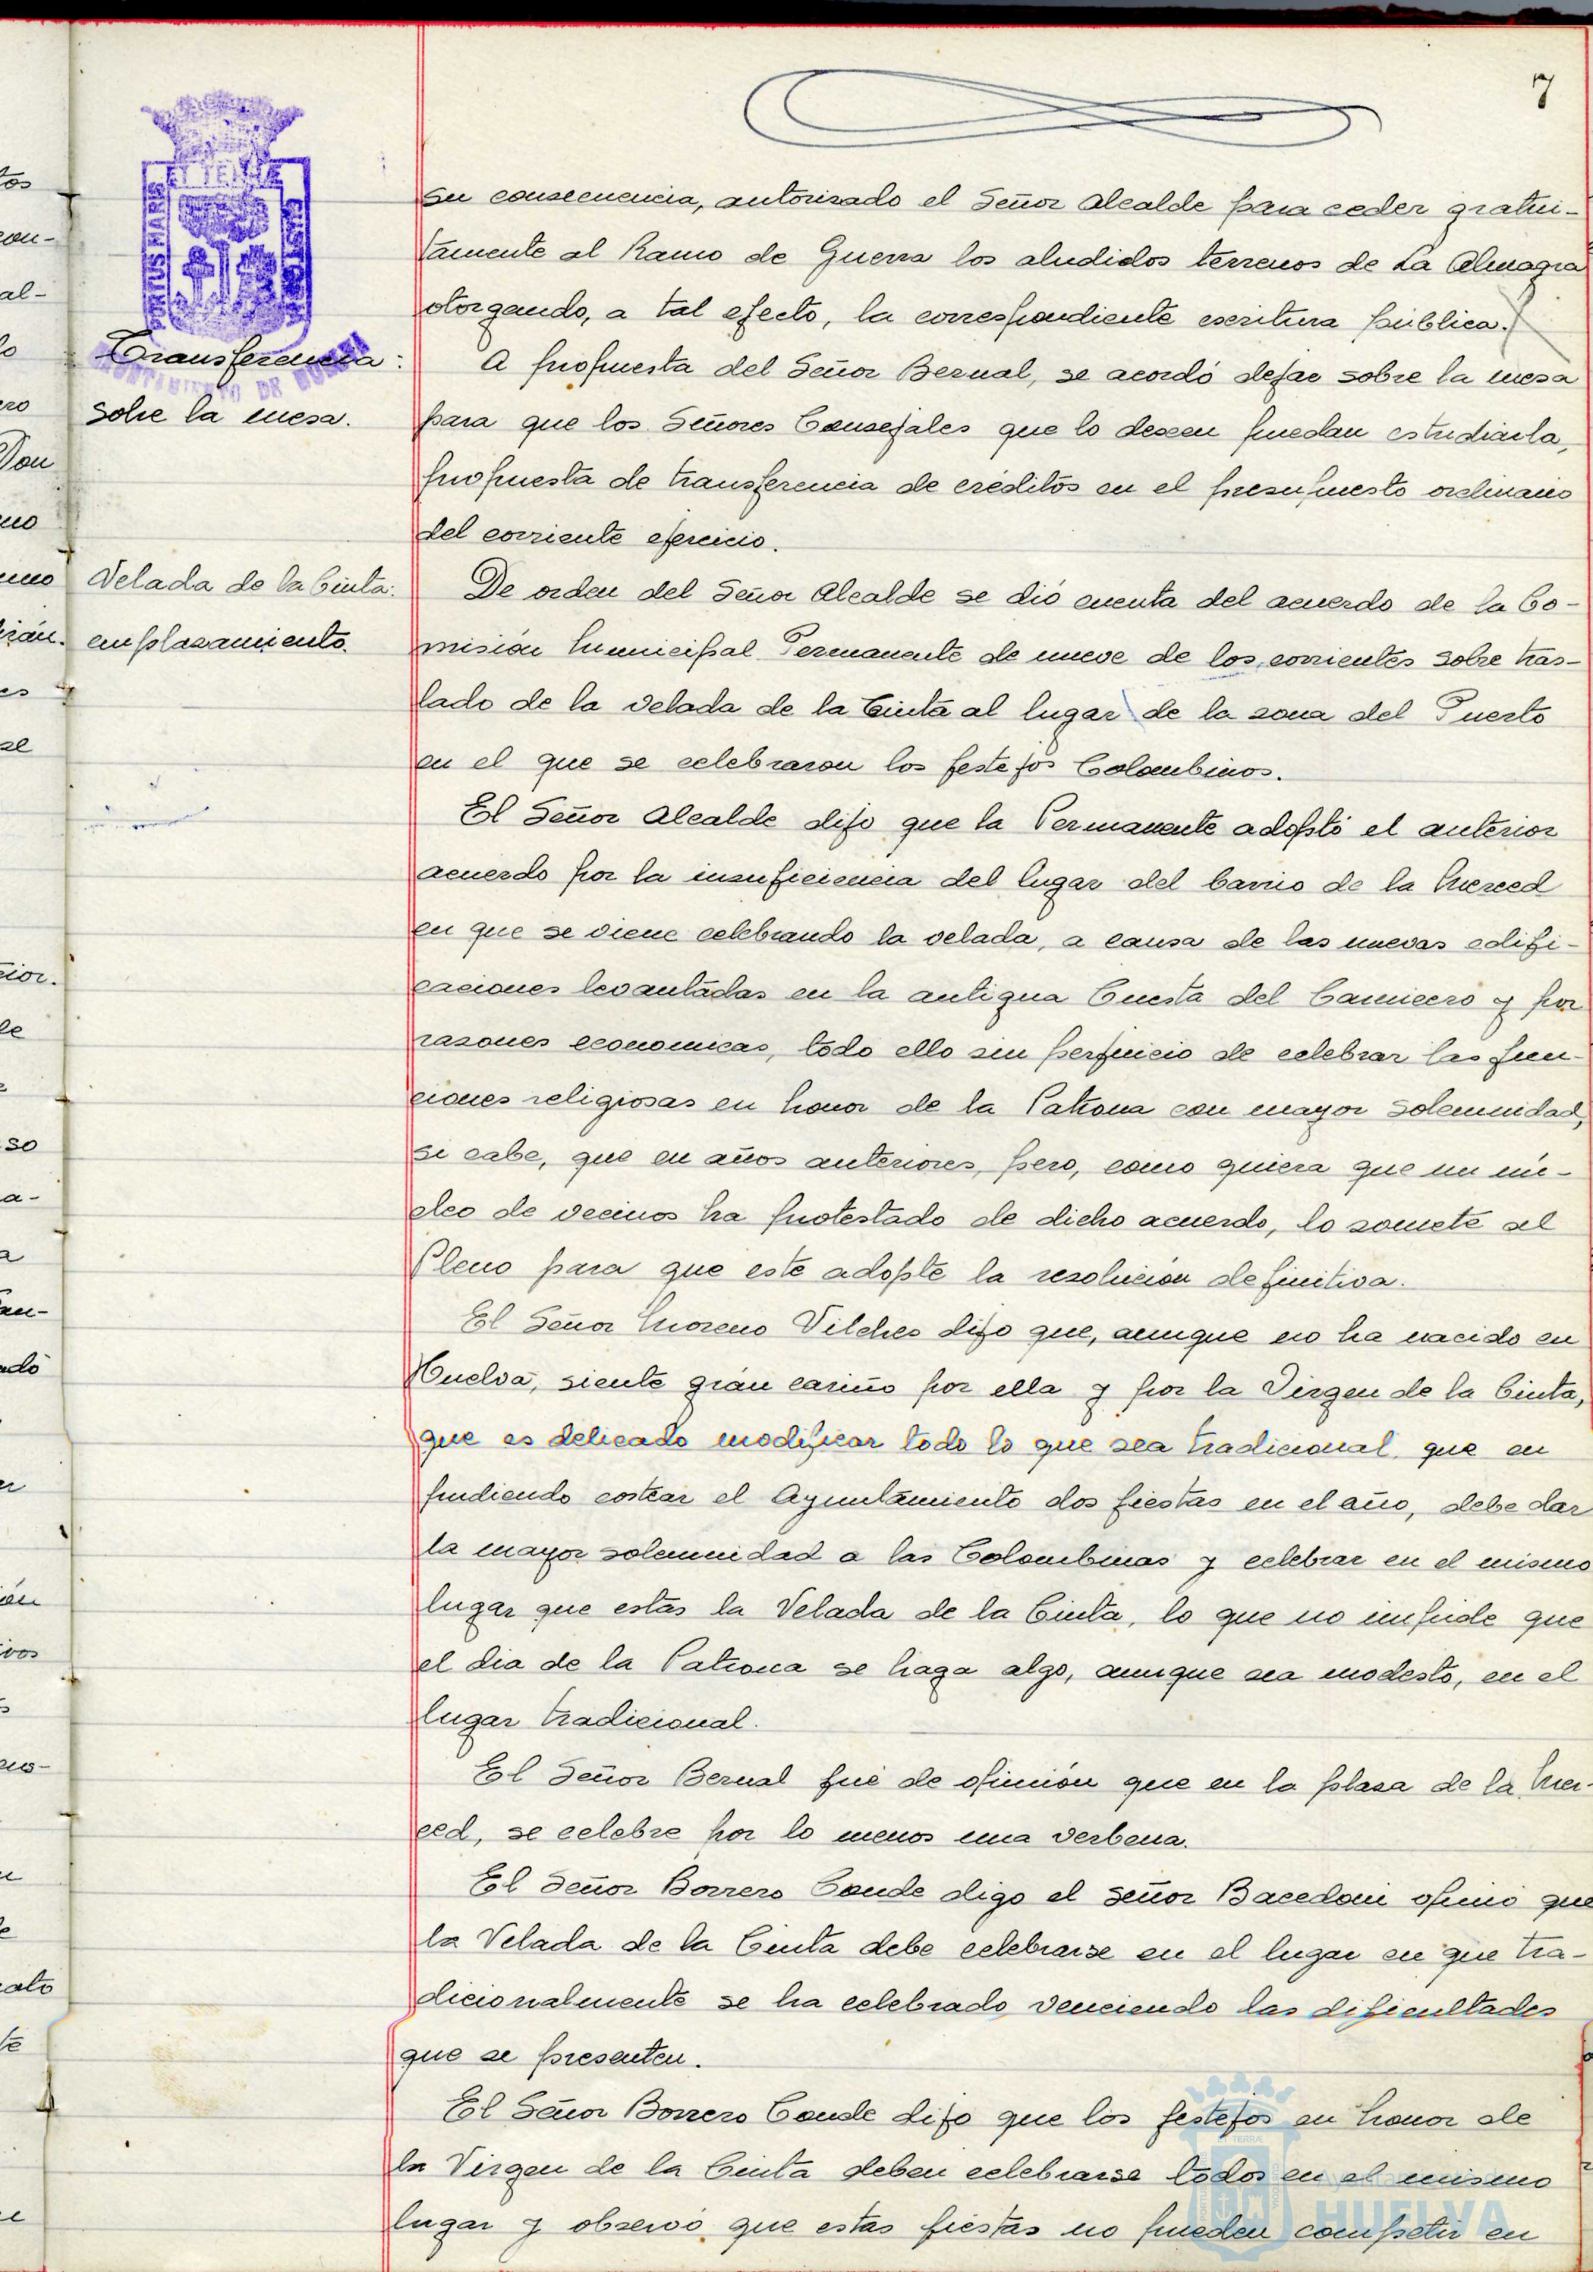 7
ET TERRÆ
PORTUS MARIS
CUSTODIA
AYUNTAMIENTO DE HUELVA
su consecuencia, autorizado el Señor Alcalde para ceder gratui-
tamente al Ramo de Guerra los aludidos terrenos de La Almagra
otorgando, a tal efecto, la correspondiente escritura pública.
Transferencia:
sobre la mesa.
A propuesta del Señor Bernal, se acordó dejar sobre la mesa
para que los Señores Consejales que lo deseen puedan estudiarla,
propuesta de transferencia de créditos en el presupuesto ordinario
del corriente ejercicio.
Velada de la Cinta:
emplazamiento.
De orden del Señor Alcalde se dió cuenta del acuerdo de la Co-
misión Municipal Permanente de nueve de los corrientes sobre tras-
lado de la velada de la Cinta al lugar de la zona del Puerto
en el que se celebraron los festejos Colombinos.
El Señor Alcalde dijo que la Permanente adoptó el anterior
acuerdo por la insuficiencia del lugar del barrio de la Merced
en que se viene celebrando la velada, a causa de las nuevas edifi-
caciones levantadas en la antigua Cuesta del Carnicero y por
razones economicas, todo ello sin perjuicio de celebrar las fun-
ciones religiosas en honor de la Patrona con mayor solemnidad,
si cabe, que en años anteriores, pero, como quiera que un nú-
cleo de vecinos ha protestado de dicho acuerdo, lo somete al
Pleno para que este adopte la resolución definitiva.
El Señor Moreno Vilches dijo que, aunque no ha nacido en
Huelva, siente gran cariño por ella y por la Virgen de la Cinta,
que es delicado modificar todo lo que sea tradicional, que en
pudiendo costear el Ayuntamiento dos fiestas en el año, debe dar
la mayor solemnidad a las Colombinas y celebrar en el mismo
lugar que estas la Velada de la Cinta, lo que no impide que
el dia de la Patrona se haga algo, aunque sea modesto, en el
lugar tradicional.
El Señor Bernal fué de opinión que en la plaza de la Mer-
ced, se celebre por lo menos una verbena.
El Señor Borrero Conde digo el señor Bacedoni opinó que
la Velada de la Cinta debe celebrarse en el lugar en que tra-
dicionalmente se ha celebrado, venciendo las dificultades
que se presenten.
El Señor Borrero Conde dijo que los festejos en honor de
la Virgen de la Cinta deben celebrarse todos en el mismo
lugar y observó que estas fiestas no pueden competir en
HUELVA